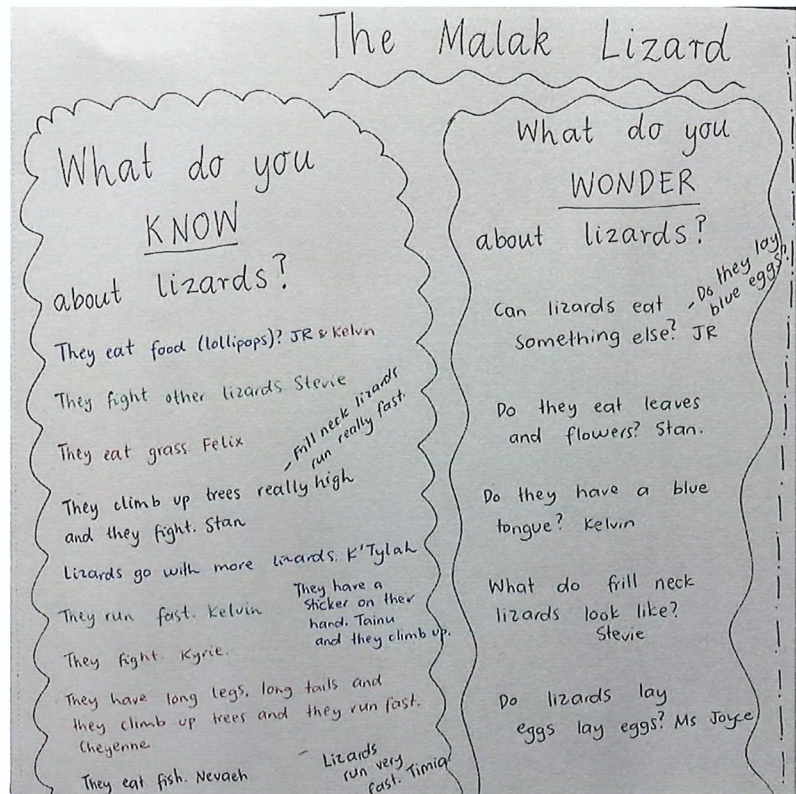 The Malak Lizard
What do you
KNOW
about lizards?
They eat food (lollipops)? JR & Kelvin
They fight other lizards Stevie
They eat grass Felix
- Frill neck lizards
run really fast.
They climb up trees really high
and they fight. Stan
Lizards go with more lizards. K'Tylah
They run fast. Kelvin
They have a
sticker on ther
hand. Tainu
and they climb up.
They fight. Kyrie.
They have long legs, long tails and
they climb up trees and they run fast.
Cheyenne
They eat fish. Nevaeh
- Lizards
run very
fast. Timia
What do you
WONDER
about lizards?
- Do they lay
blue eggs?
Can lizards eat
something else? JR
Do they eat leaves
and flowers? Stan.
Do they have a blue
tongue? Kelvin
What do frill neck
lizards look like?
Stevie
Do lizards lay
eggs lay eggs? Ms Joyce